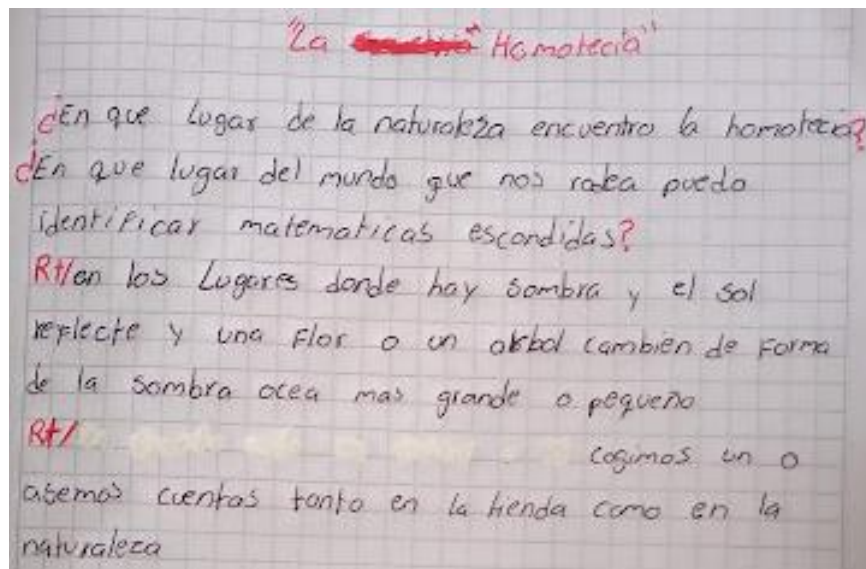 "La Homotecia"
¿En que lugar de la naturaleza encuentro la homotecia?
¿En que lugar del mundo que nos rodea puedo
identificar matematicas escondidas?
Rt/en los Lugares donde hay sombra y el sol
reflecte y una Flor o un arbol cambien de Forma
de la sombra ocea mas grande o pequeño
Rt/ cogimos un o
asemos cuentas tanto en la tienda como en la
naturaleza